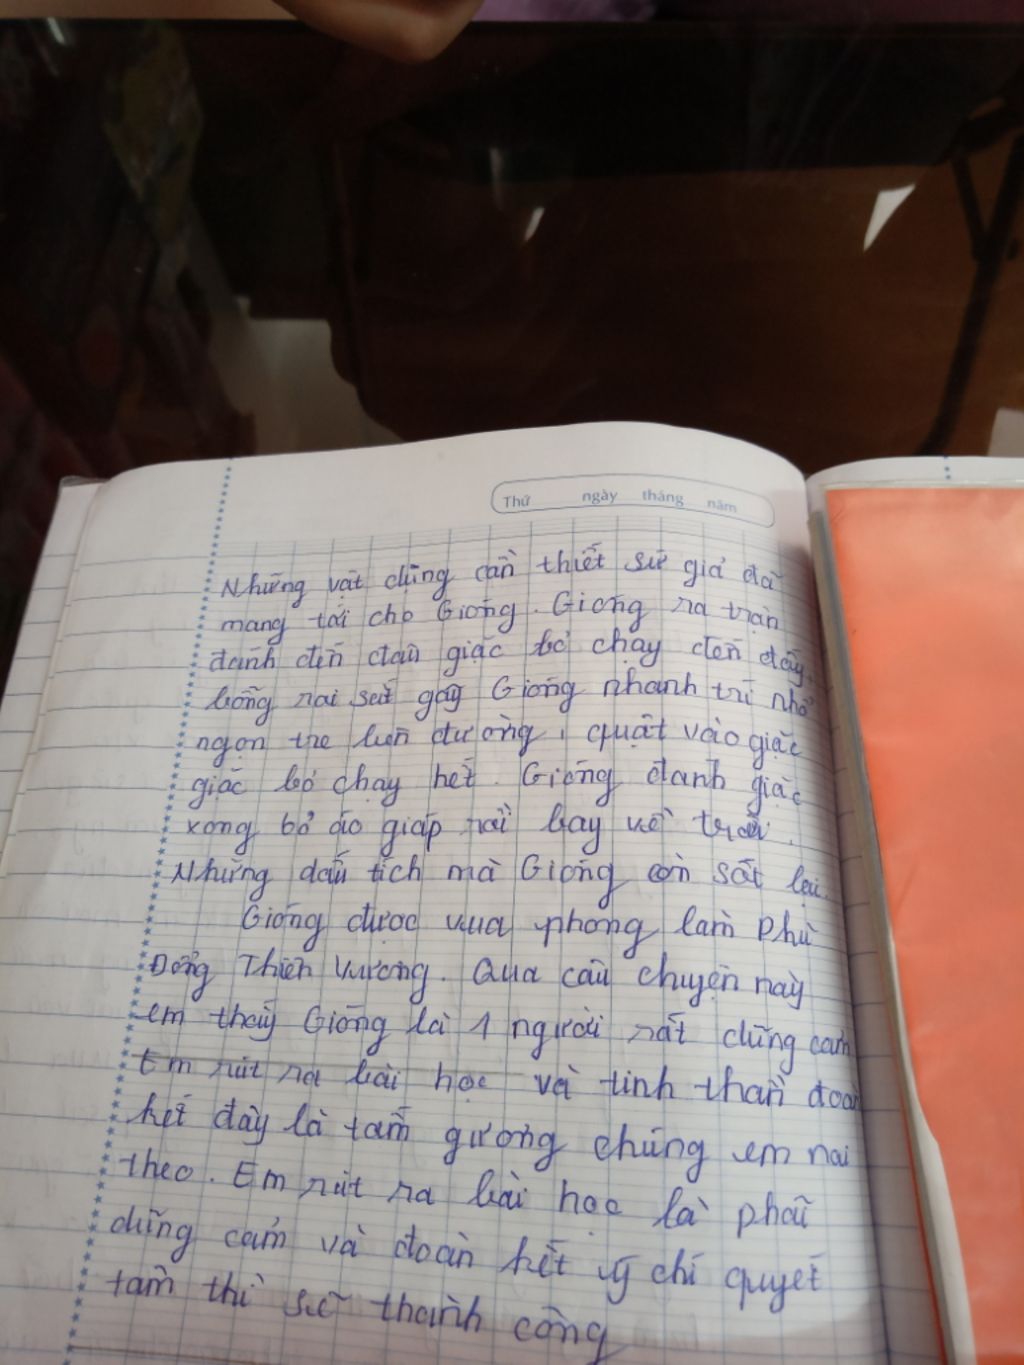 Thứ ngày tháng năm
Những vật dụng cần thiết sứ giả đã
mang tới cho Gióng. Gióng ra trận
đánh đến đâu giặc bỏ chạy đến đấy,
bỗng roi sắt gãy Gióng nhanh trí nhổ
ngọn tre bên đường, quật vào giặc
giặc bỏ chạy hết. Gióng đánh giặc
xong bỏ áo giáp rồi bay về trời.
Những dấu tích mà Gióng còn sót lại.
Gióng được vua phong làm Phù
Đổng Thiên Vương. Qua câu chuyện này
em thấy Gióng là 1 người rất dũng cảm
Em rút ra bài học và tinh thần đoàn
kết đây là tấm gương chúng em noi
theo. Em rút ra bài học là phải
dũng cảm và đoàn kết ý chí quyết
tâm thì sẽ thành công